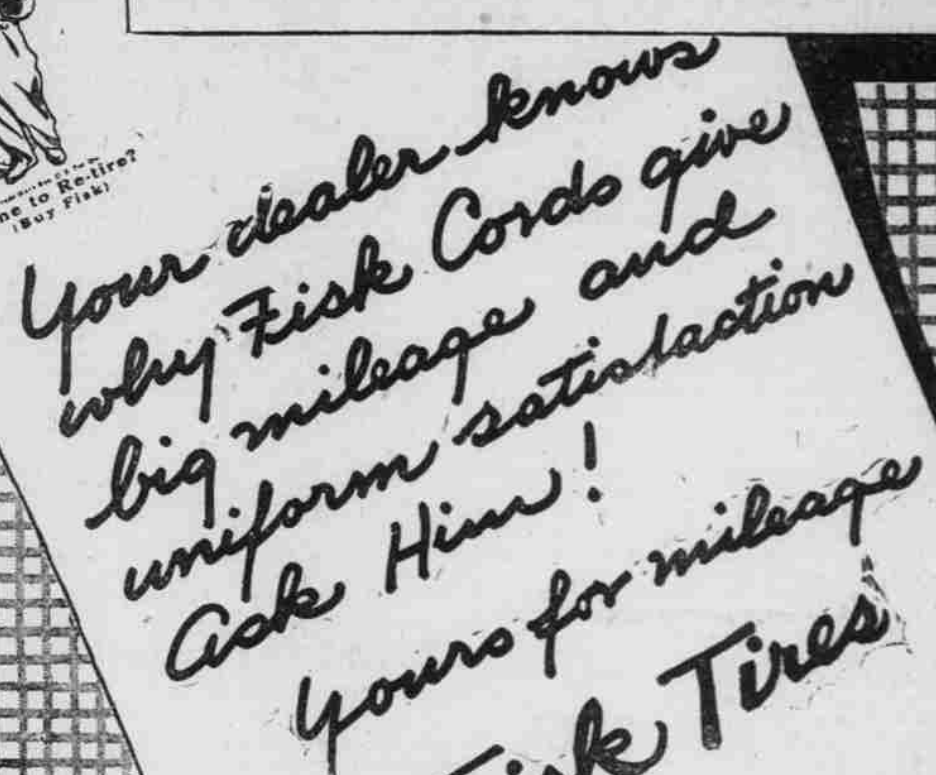 ne to Re-tire?
(Buy Fisk)
Your dealer knows
why Fisk Cords give
big mileage and
uniform satisfaction
Ask Him!
Yours for mileage
Fisk Tires